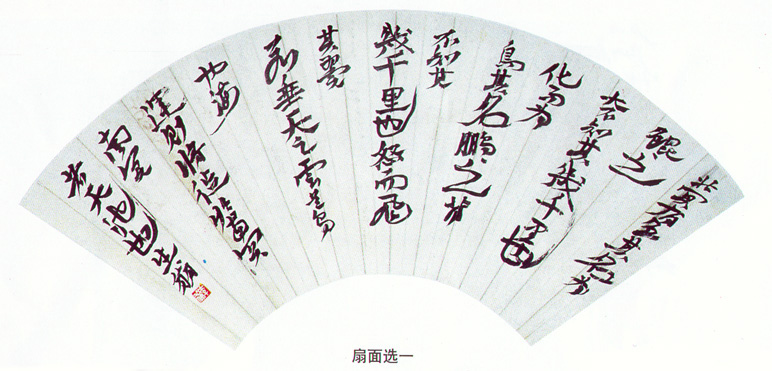 北冥有魚其名為
鯤〻之
大不知其幾千里也
化而為
鳥其名鵬〻之背
不知其
幾千里也怒而飛
其翼
若垂天之雲是鳥
也海
運則將徙於南冥
南冥
者天池也
扇面选一